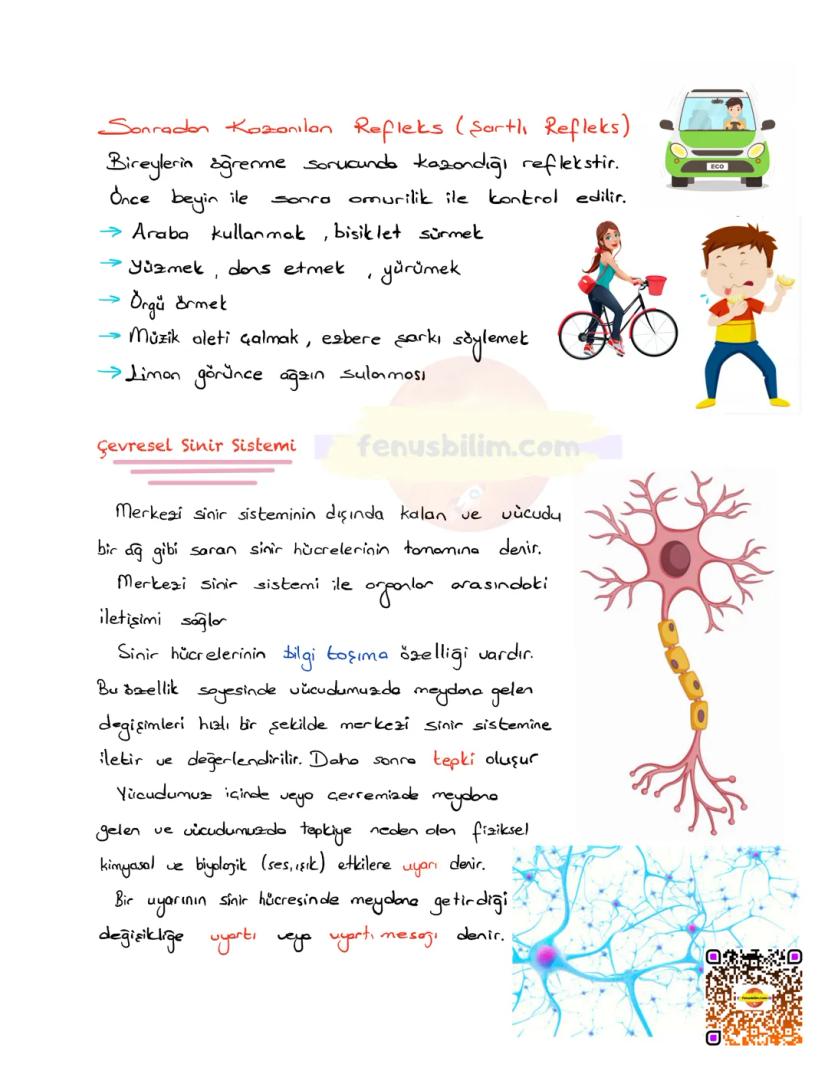 Sonradan Kazanılan Refleks (Şartlı Refleks)
Bireylerin öğrenme sonucunda kazandığı reflekstir.
Önce beyin ile sonra omurilik ile kontrol edilir.
→ Araba kullanmak, bisiklet sürmek
→ Yüzmek, dans etmek, yürümek
→ Örgü örmek
→ Müzik aleti çalmak, ezbere şarkı söylemek
→ Limon görünce ağzın sulanması
ECO
Çevresel Sinir Sistemi
fenusbilim.com
Merkezi sinir sisteminin dışında kalan ve vücudu
bir ağ gibi saran sinir hücrelerinin tamamına denir.
Merkezi sinir sistemi ile organlar arasındaki
iletişimi sağlar
Sinir hücrelerinin bilgi taşıma özelliği vardır.
Bu özellik sayesinde vücudumuzda meydana gelen
değişimleri hızlı bir şekilde merkezi sinir sistemine
iletir ve değerlendirilir. Daha sonra tepki oluşur
Vücudumuz içinde veya çevremizde meydana
gelen ve vücudumuzda tepkiye neden olan fiziksel
kimyasal ve biyolojik (ses, ışık) etkilere uyarı denir.
Bir uyarının sinir hücresinde meydana getirdiği
değişikliğe uyartı veya uyartı mesajı denir.
fenusbilim.com